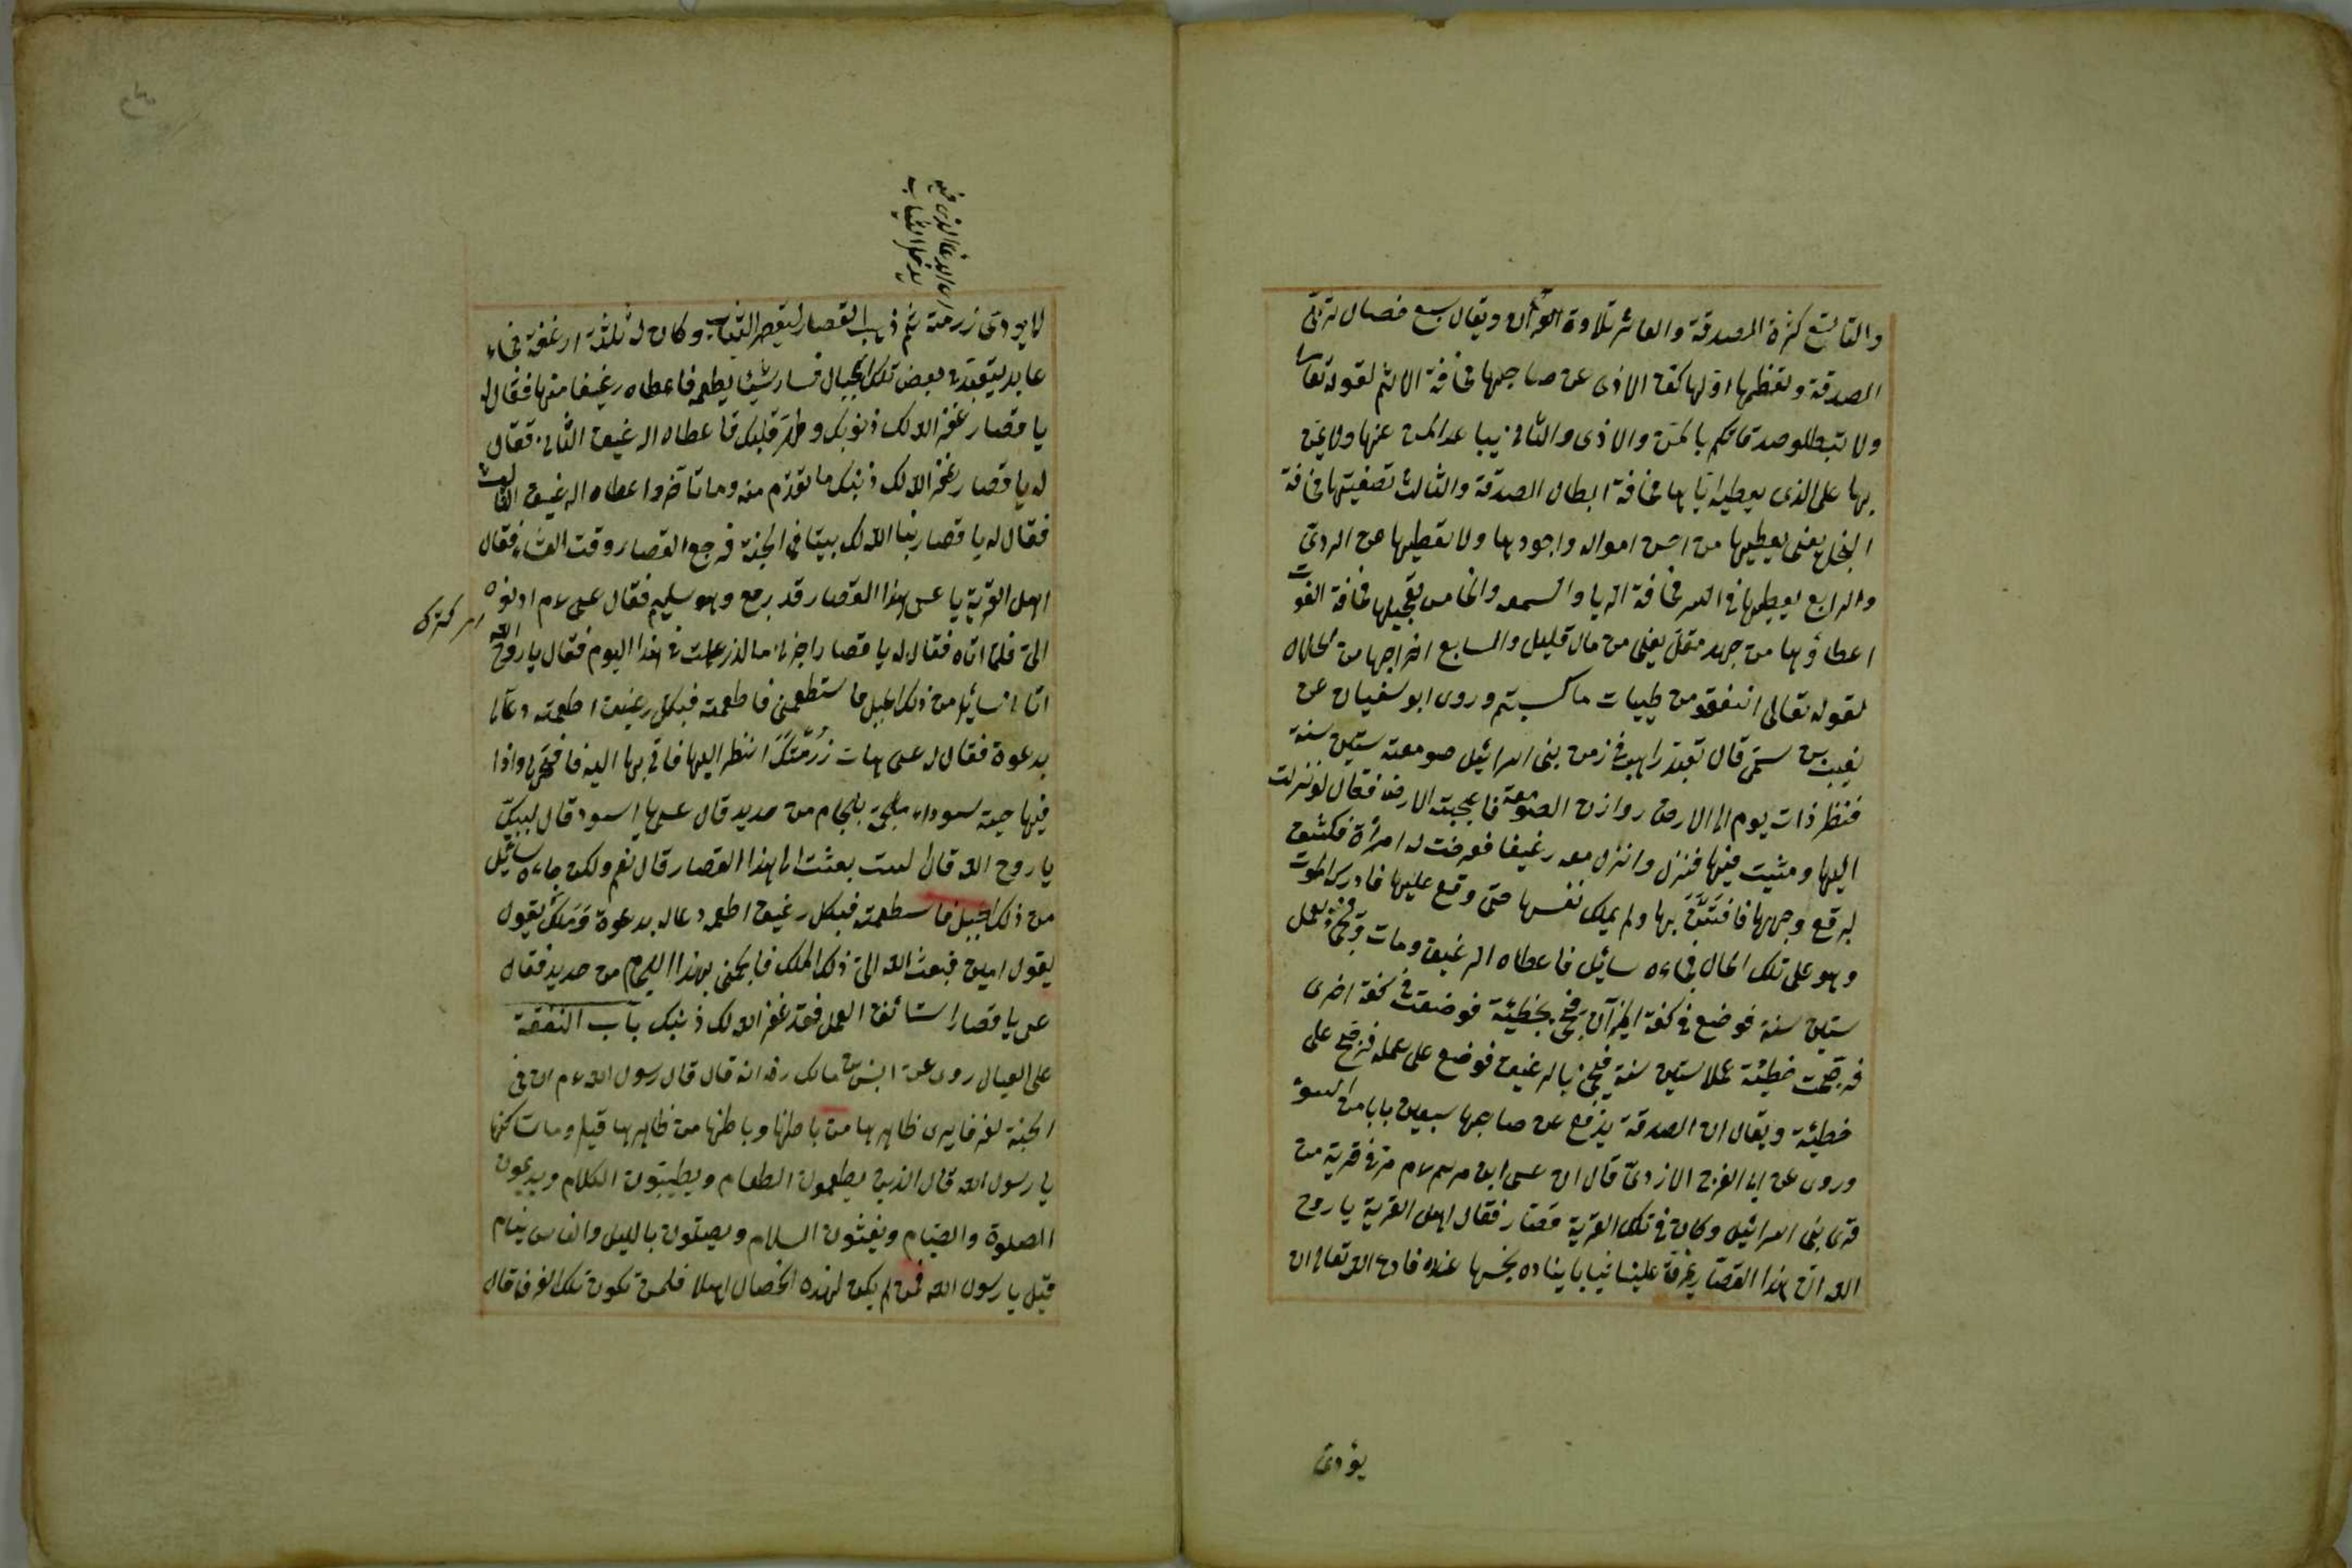 والتاسع كثرة الصدقة والعاشر تلاوة القرآن ويقال سبع خصال تربى
الصدقة وتعظمها اولها كف الاذى عن صاحبها مخافة الاثم لقوله تعالى
ولا تبطلو صدقاتكم بالمن والاذى والثانى يتباعد المن عنها ولا يمن
بها على الذى يعطيه اياها مخافة ابطال الصدقة والثالث تصفيتها مخافة
البخل يعنى يعطيها من احسن امواله واجودها ولا يعطيها من الردى
والرابع يعطيها فى السر مخافة الريا والسمعه والخامس تعجيلها مخافة الفوت
اعطاؤها من جهد مقل يعنى من مال قليل والسابع اخراجها من حلاله
لقوله تعالى انفقو من طيبات ما كسبتم وروى ابو سفيان عن
بن سمى قال تعبد راهب فى زمن بنى اسرائيل صومعته ستين سنة
فنظر ذات يوم الى الارض روازن الصومعة فاعجبته الارض فقال لو نزلت
اليها ومشيت فيها فنزل وانزل معه رغيفا فعرضت له امرأة فكشف
برقع وجهها فافتتن بها ولم يملك نفسها حتى وقع عليها فادركه الموت
وهو على تلك الحال فجاءه سائل فاعطاه الرغيف ومات وجىء بعمل
ستين سنة فوضع فى كفة الميزان وجىء بخطيئة فوضعت فى كفة اخرى
فرجحت خطيئة عملا ستين سنة فجىء بالرغيف فوضع على عمله فرجح على
خطيئة ويقال ان الصدقة يدفع عن صاحبها سبعين بابا من السوء
وروى عن ابى الفرج الازدى قال ان عيسى ابن مريم ع م مر فى قرية من
قرى بنى اسرائيل وكان فى تلك القرية قصار فقال اهل القرية يا روح
الله ان هذا القصار يخرق علينا ثيابنا يخسها عنده فادع الله تعالى ان
يؤدى
لا يؤدى زرمته ثم ذهب القصار ليقصر الثياب وكان له ثلثة ارغفة فجاء
عابد يتعبد فى بعض تلك الجبال فسار شيئا يطعمه فاعطاه رغيفا منها فقال له
يا قصار غفر الله لك ذنوبك وطهر قلبك فاعطاه الرغيف الثانى فقال
له يا قصار غفر الله لك ذنبك ما تقدم منه وما تأخر واعطاه الرغيف الثالث
فقال له يا قصار بنا الله لك بيتا فى الجنة فرجع القصار وقت العشاء فقال
اهل القرية يا عيسى هذا القصار قد رجع وهو سليم فقال عيسى ع م ادعوه
الى فلما اتاه فقال له يا قصار اخبرنى ما الذى عملت فى هذا اليوم فقال يا روح الله
اتانى سائل من ذلك الجبل فاستطعمنى فاطعمته فبكل رغيف اطعمته دعا لى
بدعوة فقال له عيسى هات زرمتك انظر اليها فاتى بها اليه ففتحها واذا
فيها حية سوداء ملجم بلجام من حديد قال عيسى يا اسود قال لبيك
يا روح الله قال الست بعثت الى هذا القصار قال نعم ولكن جاءه سائل
من ذلك الجبل فاستطعمته فبكل رغيف اطعمه دعا له بدعوة وملك يقول
يقول امين فبعث الله الى ذلك الملك فالجمنى بهذا اللجام من حديد فقال
عيسى يا قصار استأنف العمل فقد غفر الله لك ذنبك باب النفقة
على العيال روى عن انس بن مالك رضه انه قال قال رسول الله ع م ان فى
الجنة لغرفا يرى ظاهرها من باطنها وباطنها من ظاهرها قيل ومات كنها
يا رسول الله قال الذين يطعمون الطعام ويطيبون الكلام ويديمون
الصلوة والصيام ويفشون السلام ويصلون بالليل والناس نيام
قيل يا رسول الله فمن لم يكن لهذه الخصال اهلا فلمن تكون تلك الغرف قال